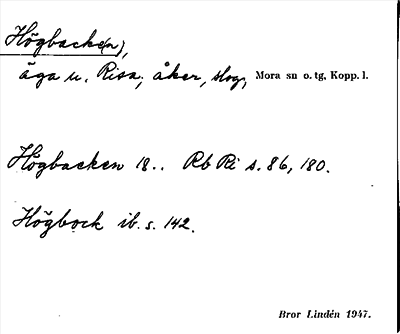 Högbacke(n),
äga u. Risa, åker, slog, Mora sn o. tg, Kopp. l.
Högbacken 18.. Rb Ri s. 86, 180.
Högbock ib. s. 142.
Bror Lindén 1947.